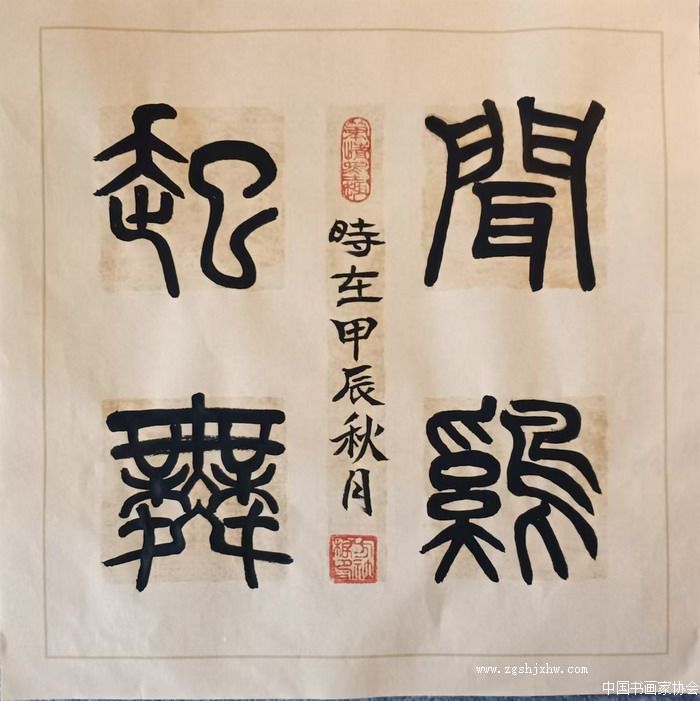 聞雞
起舞
時在甲辰秋月
www.zgshjxhw.com
中国书画家协会